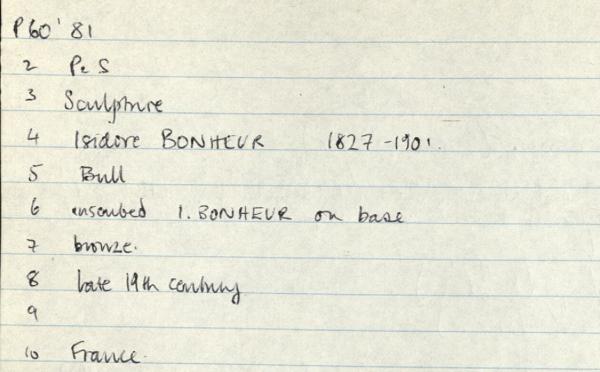 P60'81
2 P&S
3 Sculpture
4 Isidore BONHEUR 1827-1901.
5 Bull
6 inscribed I. BONHEUR on base
7 bronze.
8 late 19th century
9
10 France.